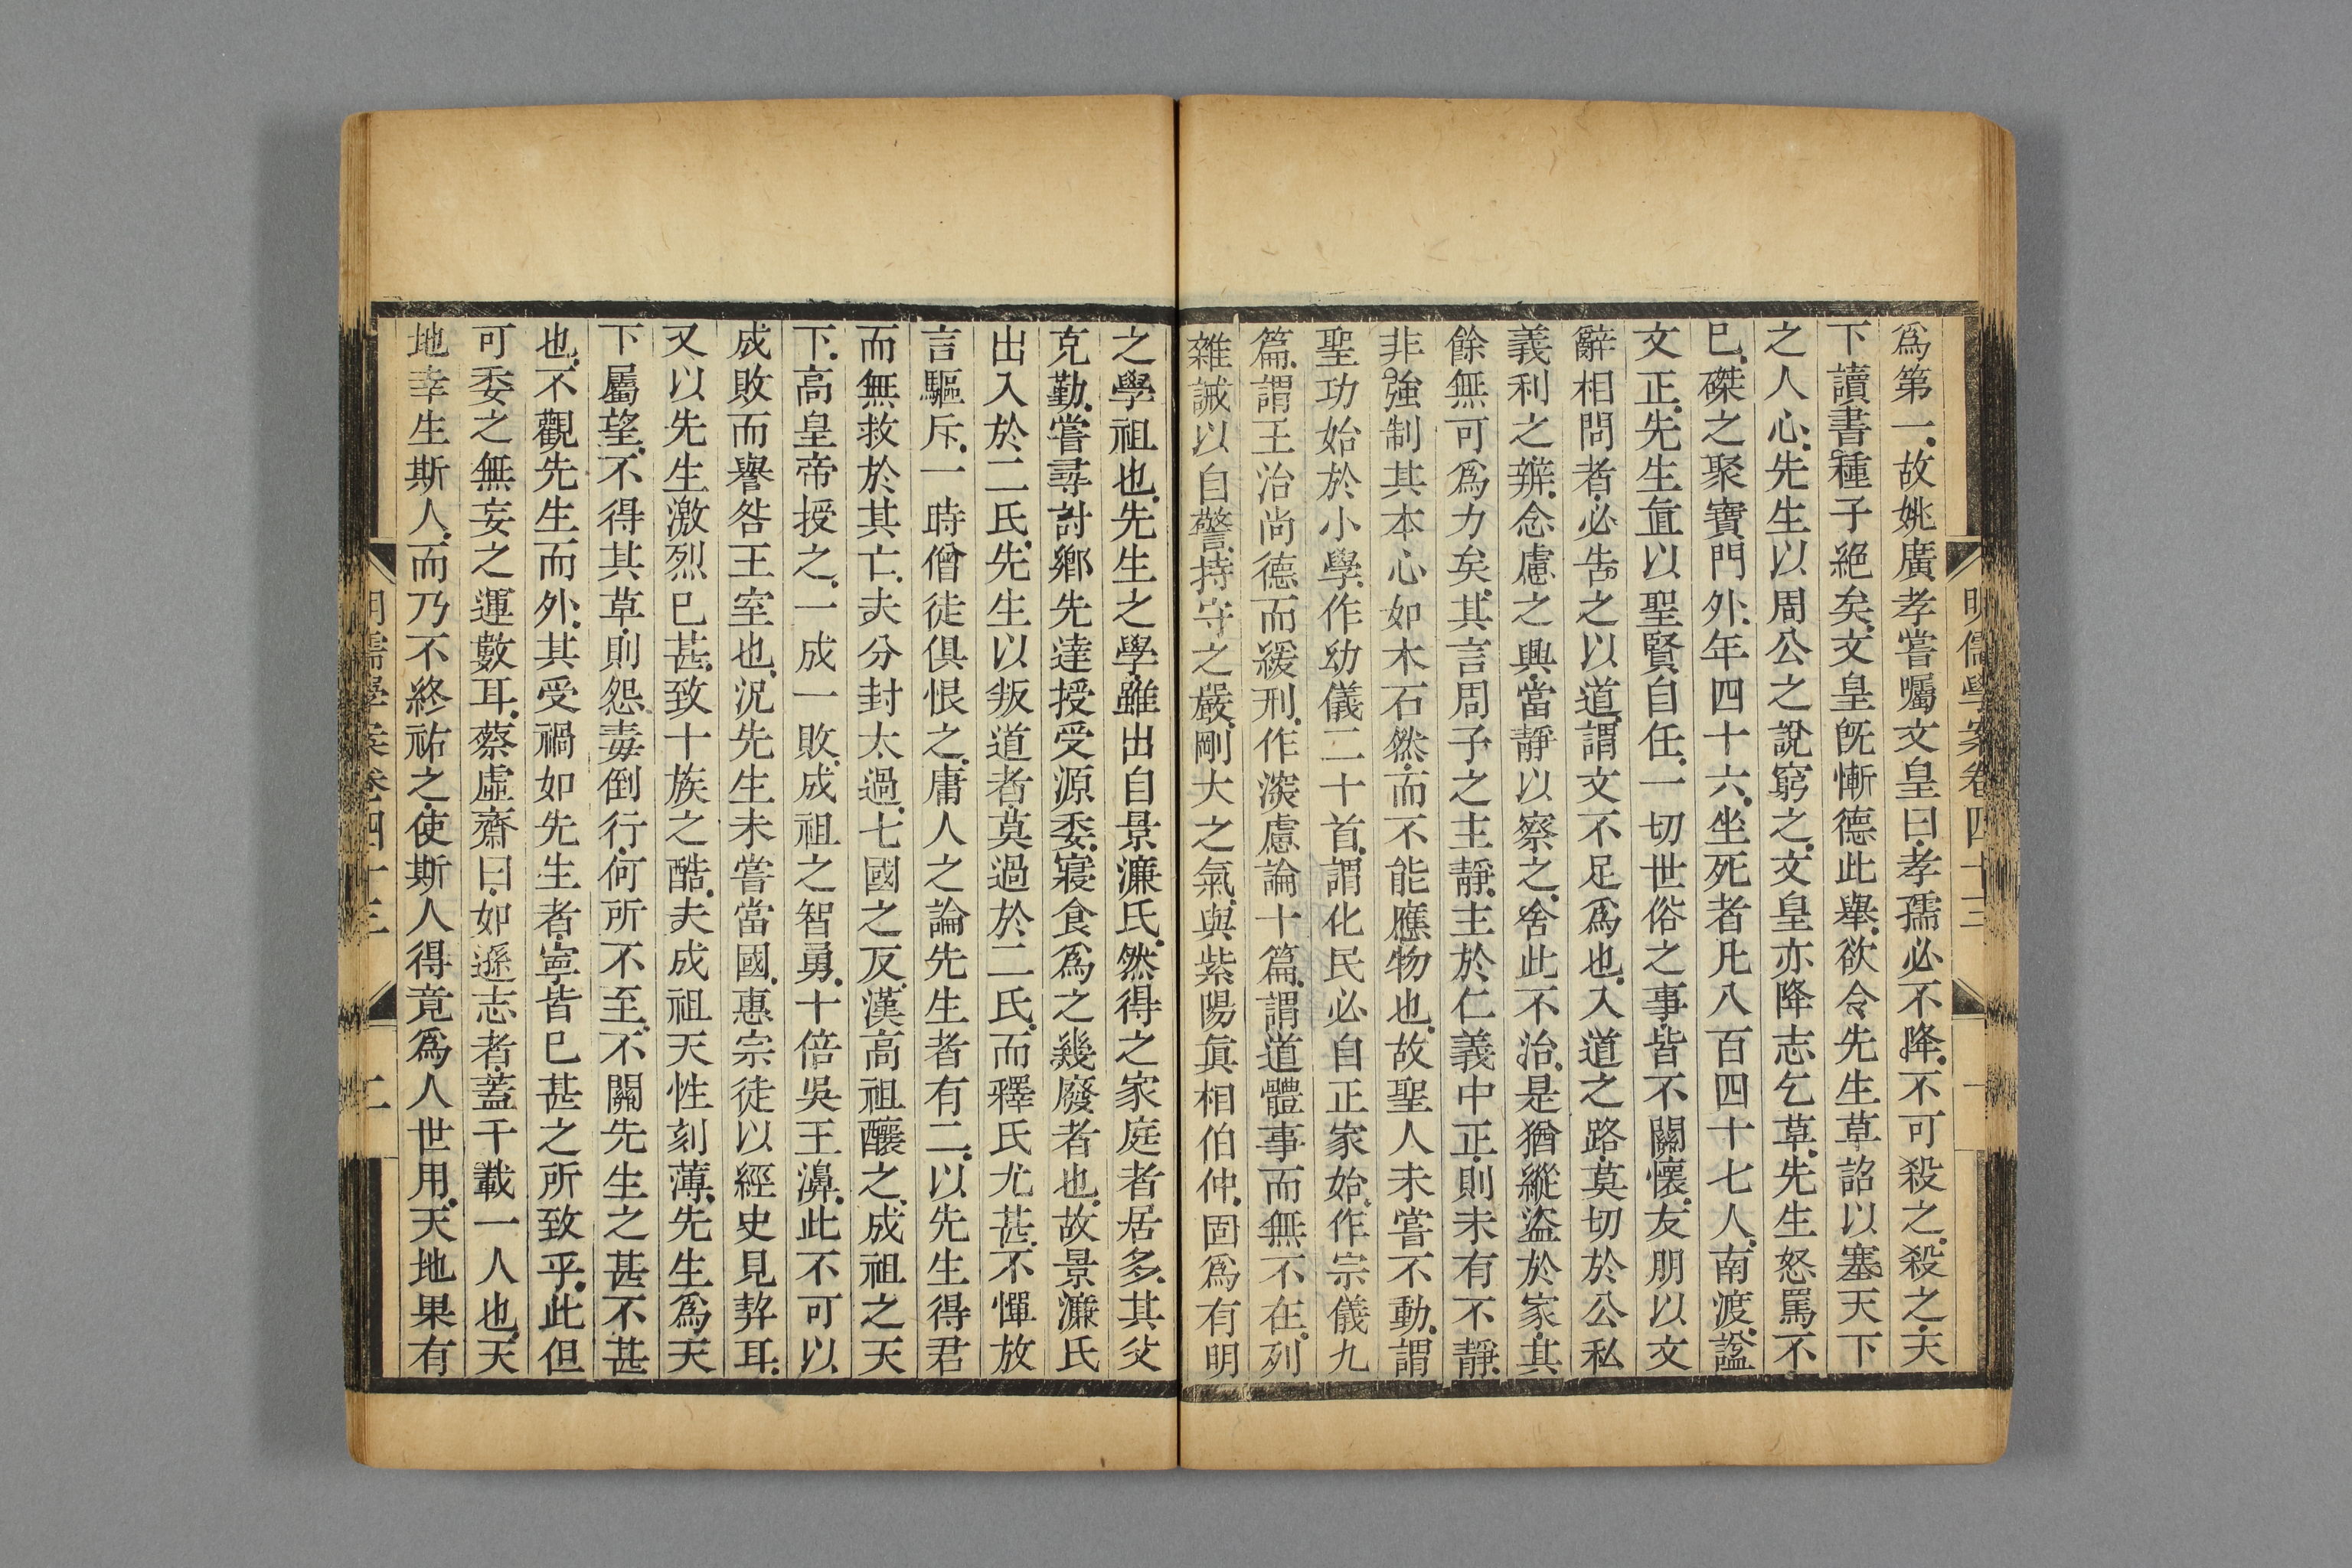 明儒學案卷四十三
一
爲第一.故姚廣孝嘗囑文皇曰.孝孺必不降.不可殺之.殺之.天
下讀書種子絕矣.文皇旣慚德此舉.欲令先生草詔以塞天下
之人心.先生以周公之說窮之.文皇亦降志乞草.先生怒罵不
已.磔之聚寶門外.年四十六.坐死者凡八百四十七人.南渡.諡
文正.先生直以聖賢自任.一切世俗之事.皆不關懷.友朋以文
辭相問者.必告之以道.謂文不足爲也.入道之路.莫切於公私
義利之辨.念慮之興.當靜以察之.舍此不治.是猶縱盜於家.其
餘無可爲力矣.其言周子之主靜.主於仁義中正.則未有不靜.
非強制其本心如木石然.而不能應物也.故聖人未嘗不動.謂
聖功始於小學.作幼儀二十首.謂化民必自正家始.作宗儀九
篇.謂王治尚德而緩刑.作深慮論十篇.謂道體事而無不在.列
雜誡以自警.持守之嚴.剛大之氣.與紫陽眞相伯仲.固爲有明
之學祖也.先生之學.雖出自景濂氏.然得之家庭者居多.其父
克勤.嘗尋討鄉先達授受源委.寢食爲之幾廢者也.故景濂氏
出入於二氏.先生以叛道者.莫過於二氏.而釋氏尤甚.不憚放
言驅斥.一時僧徒俱恨之.庸人之論先生者有二.以先生得君
而無救於其亡.夫分封太過.七國之反.漢高祖釀之.成祖之天
下.高皇帝授之.一成一敗.成祖之智勇.十倍吳王濞.此不可以
成敗而譽咎王室也.況先生未嘗當國.惠宗徒以經史見契耳.
又以先生激烈已甚.致十族之酷.夫成祖天性刻薄.先生爲天
下屬望.不得其草.則怨毒倒行.何所不至.不關先生之甚不甚
也.不觀先生而外.其受禍如先生者.寧皆已甚之所致乎.此但
可委之無妄之運數耳.蔡虛齋曰.如遜志者.蓋千載一人也.天
地幸生斯人.而乃不終祐之.使斯人得竟爲人世用.天地果有
明儒學案卷四十三
二